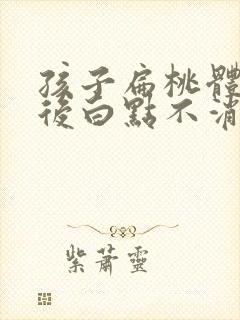 孩子扁桃體
後白點不消
紫蕭靈